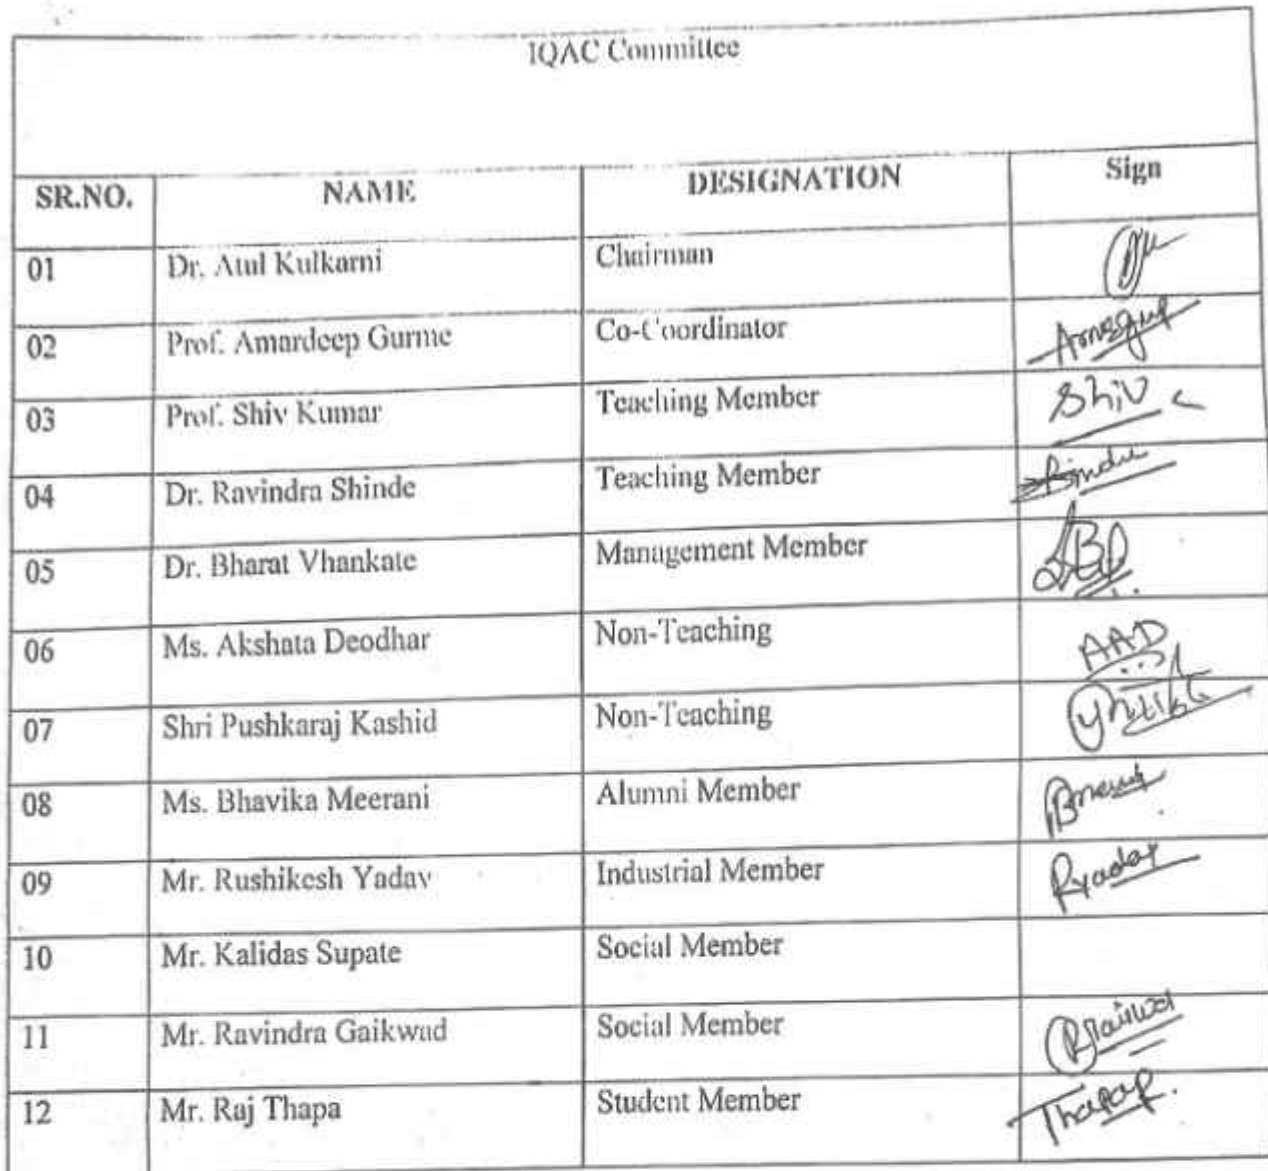 IQAC Committee
SR.NO. NAME DESIGNATION Sign
01 Dr. Atul Kulkarni Chairman
02 Prof. Amardeep Gurme Co-Coordinator
03 Prof. Shiv Kumar Teaching Member Shiv
04 Dr. Ravindra Shinde Teaching Member
05 Dr. Bharat Vhankate Management Member
06 Ms. Akshata Deodhar Non-Teaching AAD
07 Shri Pushkaraj Kashid Non-Teaching
08 Ms. Bhavika Meerani Alumni Member
09 Mr. Rushikesh Yadav Industrial Member Ryadav
10 Mr. Kalidas Supate Social Member
11 Mr. Ravindra Gaikwad Social Member
12 Mr. Raj Thapa Student Member